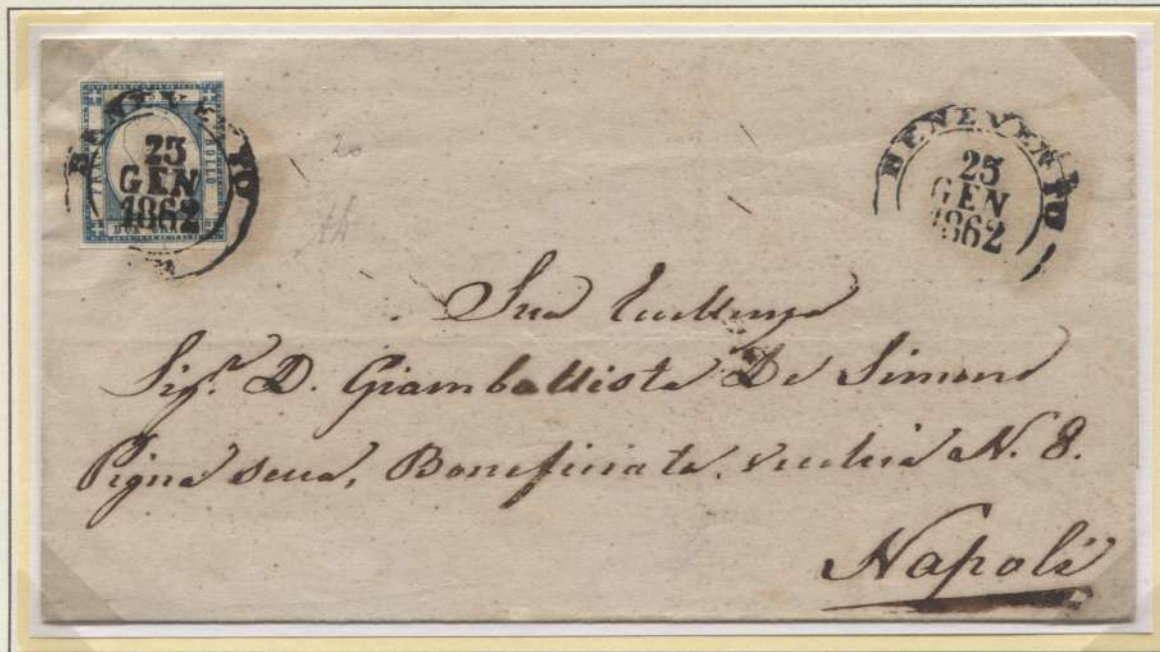 BENEVENTO
23
GEN
1862
BOLLO
BENEVENTO
25
GEN
1862
20
Sua Eccellenza
Sigr. D. Giambattista De Simone
Pigna secca, Beneficiata vecchia N. 8.
Napoli